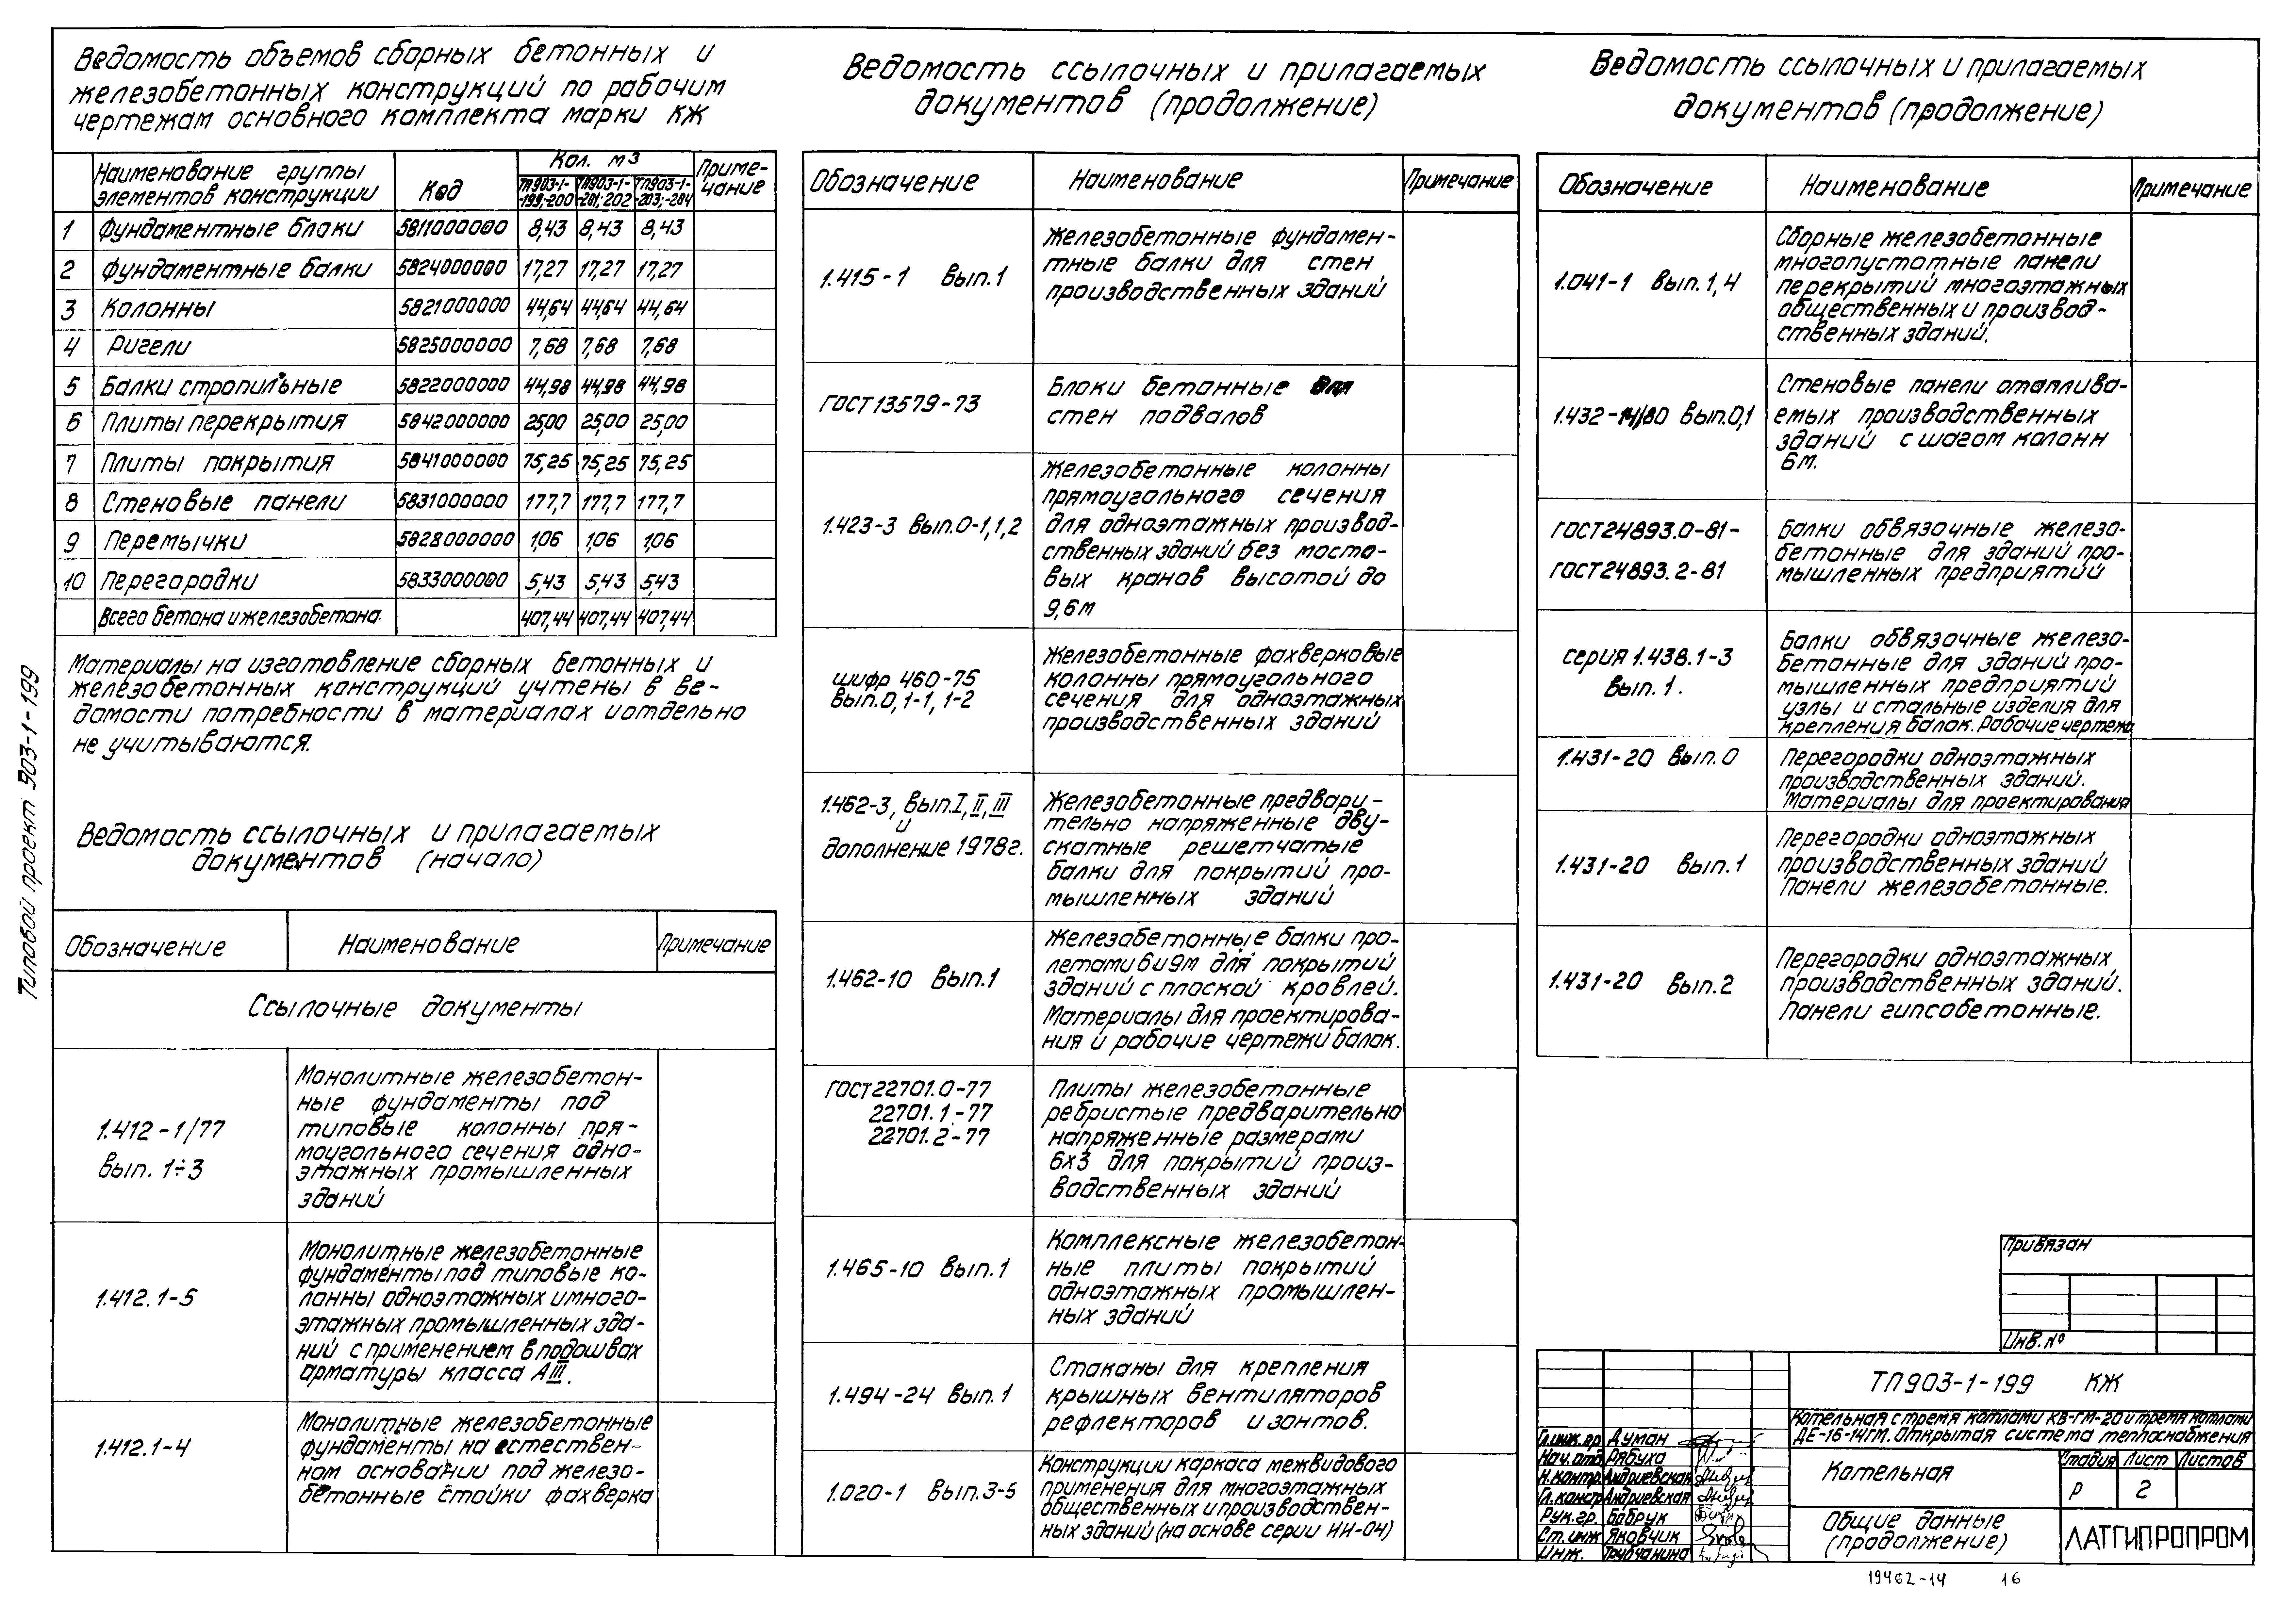 Ведомость объемов сборных бетонных и
железобетонных конструкций по рабочим
чертежам основного комплекта марки КЖ
Наименование группы элементов конструкции Код Кол. м3 Приме-чание
ТП903-1-199;-200 ТП903-1-201;-202 ТП903-1-203;-204
1 Фундаментные блоки 5811000000 8,43 8,43 8,43
2 Фундаментные балки 5824000000 17,27 17,27 17,27
3 Колонны 5821000000 44,64 44,64 44,64
4 Ригели 5825000000 7,68 7,68 7,68
5 Балки стропильные 5822000000 44,98 44,98 44,98
6 Плиты перекрытия 5842000000 25,00 25,00 25,00
7 Плиты покрытия 5841000000 75,25 75,25 75,25
8 Стеновые панели 5831000000 177,7 177,7 177,7
9 Перемычки 5828000000 1,06 1,06 1,06
10 Перегородки 5833000000 5,43 5,43 5,43
Всего бетона и железобетона. 407,44 407,44 407,44
Материалы на изготовление сборных бетонных и
железобетонных конструкций учтены в ве-
домости потребности в материалах и отдельно
не учитываются.
Ведомость ссылочных и прилагаемых
документов (начало)
Обозначение Наименование Примечание
Ссылочные документы
1.412-1/77
вып. 1÷3
Монолитные железобетон-
ные фундаменты под
типовые колонны пря-
моугольного сечения одно-
этажных промышленных
зданий
1.412.1-5
Монолитные железобетонные
фундаменты под типовые ко-
лонны одноэтажных и много-
этажных промышленных зда-
ний с применением в подошвах
арматуры класса АIII.
1.412.1-4
Монолитные железобетонные
фундаменты на естествен-
ном основании под железо-
бетонные стойки фахверка
Ведомость ссылочных и прилагаемых
документов (продолжение)
Обозначение Наименование Примечание
1.415-1 Вып.1
Железобетонные фундамен-
тные балки для стен
производственных зданий
ГОСТ 13579-73
Блоки бетонные для
стен подвалов
1.423-3 Вып.0-1,1,2
Железобетонные колонны
прямоугольного сечения
для одноэтажных производ-
ственных зданий без мосто-
вых кранов высотой до
9,6м
шифр 460-75
Вып.0, 1-1, 1-2
Железобетонные фахверковые
колонны прямоугольного
сечения для одноэтажных
производственных зданий
1.462-3, Вып.I, II, III
и
дополнение 1978г.
Железобетонные предвари-
тельно напряженные дву-
скатные решетчатые
балки для покрытий про-
мышленных зданий
1.462-10 Вып.1
Железобетонные балки про-
летами 6и9м для покрытий
зданий с плоской кровлей.
Материалы для проектирова-
ния и рабочие чертежи балок.
ГОСТ 22701.0-77
22701.1-77
22701.2-77
Плиты железобетонные
ребристые предварительно
напряженные размерами
6х3 для покрытий произ-
водственных зданий
1.465-10 Вып.1
Комплексные железобетон-
ные плиты покрытий
одноэтажных промышлен-
ных зданий
1.494-24 Вып.1
Стаканы для крепления
крышных вентиляторов
рефлекторов и зонтов.
1.020-1 Вып.3-5
Конструкции каркаса межвидового
применения для многоэтажных
общественных и производствен-
ных зданий (на основе серии ИИ-04)
Ведомость ссылочных и прилагаемых
документов (продолжение)
Обозначение Наименование Примечание
1.041-1 Вып.1,4
Сборные железобетонные
многопустотные панели
перекрытий многоэтажных
общественных и производ-
ственных зданий.
1.432-14/80 Вып.0,1
Стеновые панели отаплива-
емых производственных
зданий с шагом колонн
6м.
ГОСТ 24893.0-81-
ГОСТ 24893.2-81
Балки обвязочные железо-
бетонные для зданий про-
мышленных предприятий
серия 1.438.1-3
Вып. 1.
Балки обвязочные железо-
бетонные для зданий про-
мышленных предприятий
узлы и стальные изделия для
крепления балок. Рабочие чертежи
1.431-20 Вып.0
Перегородки одноэтажных
производственных зданий.
Материалы для проектирования
1.431-20 Вып.1
Перегородки одноэтажных
производственных зданий
Панели железобетонные.
1.431-20 Вып.2
Перегородки одноэтажных
производственных зданий.
Панели гипсобетонные.
Привязан
Инв.№
ТП903-1-199 КЖ
Котельная с тремя котлами КВ-ГМ-20 и тремя котлами
ДЕ-16-14ГМ. Открытая система теплоснабжения
Гл.инж.пр Думан
Нач.отд. Рябуха
Н.контр. Андриевская
Гл.констр Андриевская
Рук.гр. Бобрук
Ст.инж Яковчик
Инж. Трубчанина
Котельная
Стадия Лист Листов
Р 2
Общие данные
(продолжение)
ЛАТГИПРОПРОМ
19462-14 16
Типовой проект 903-1-199